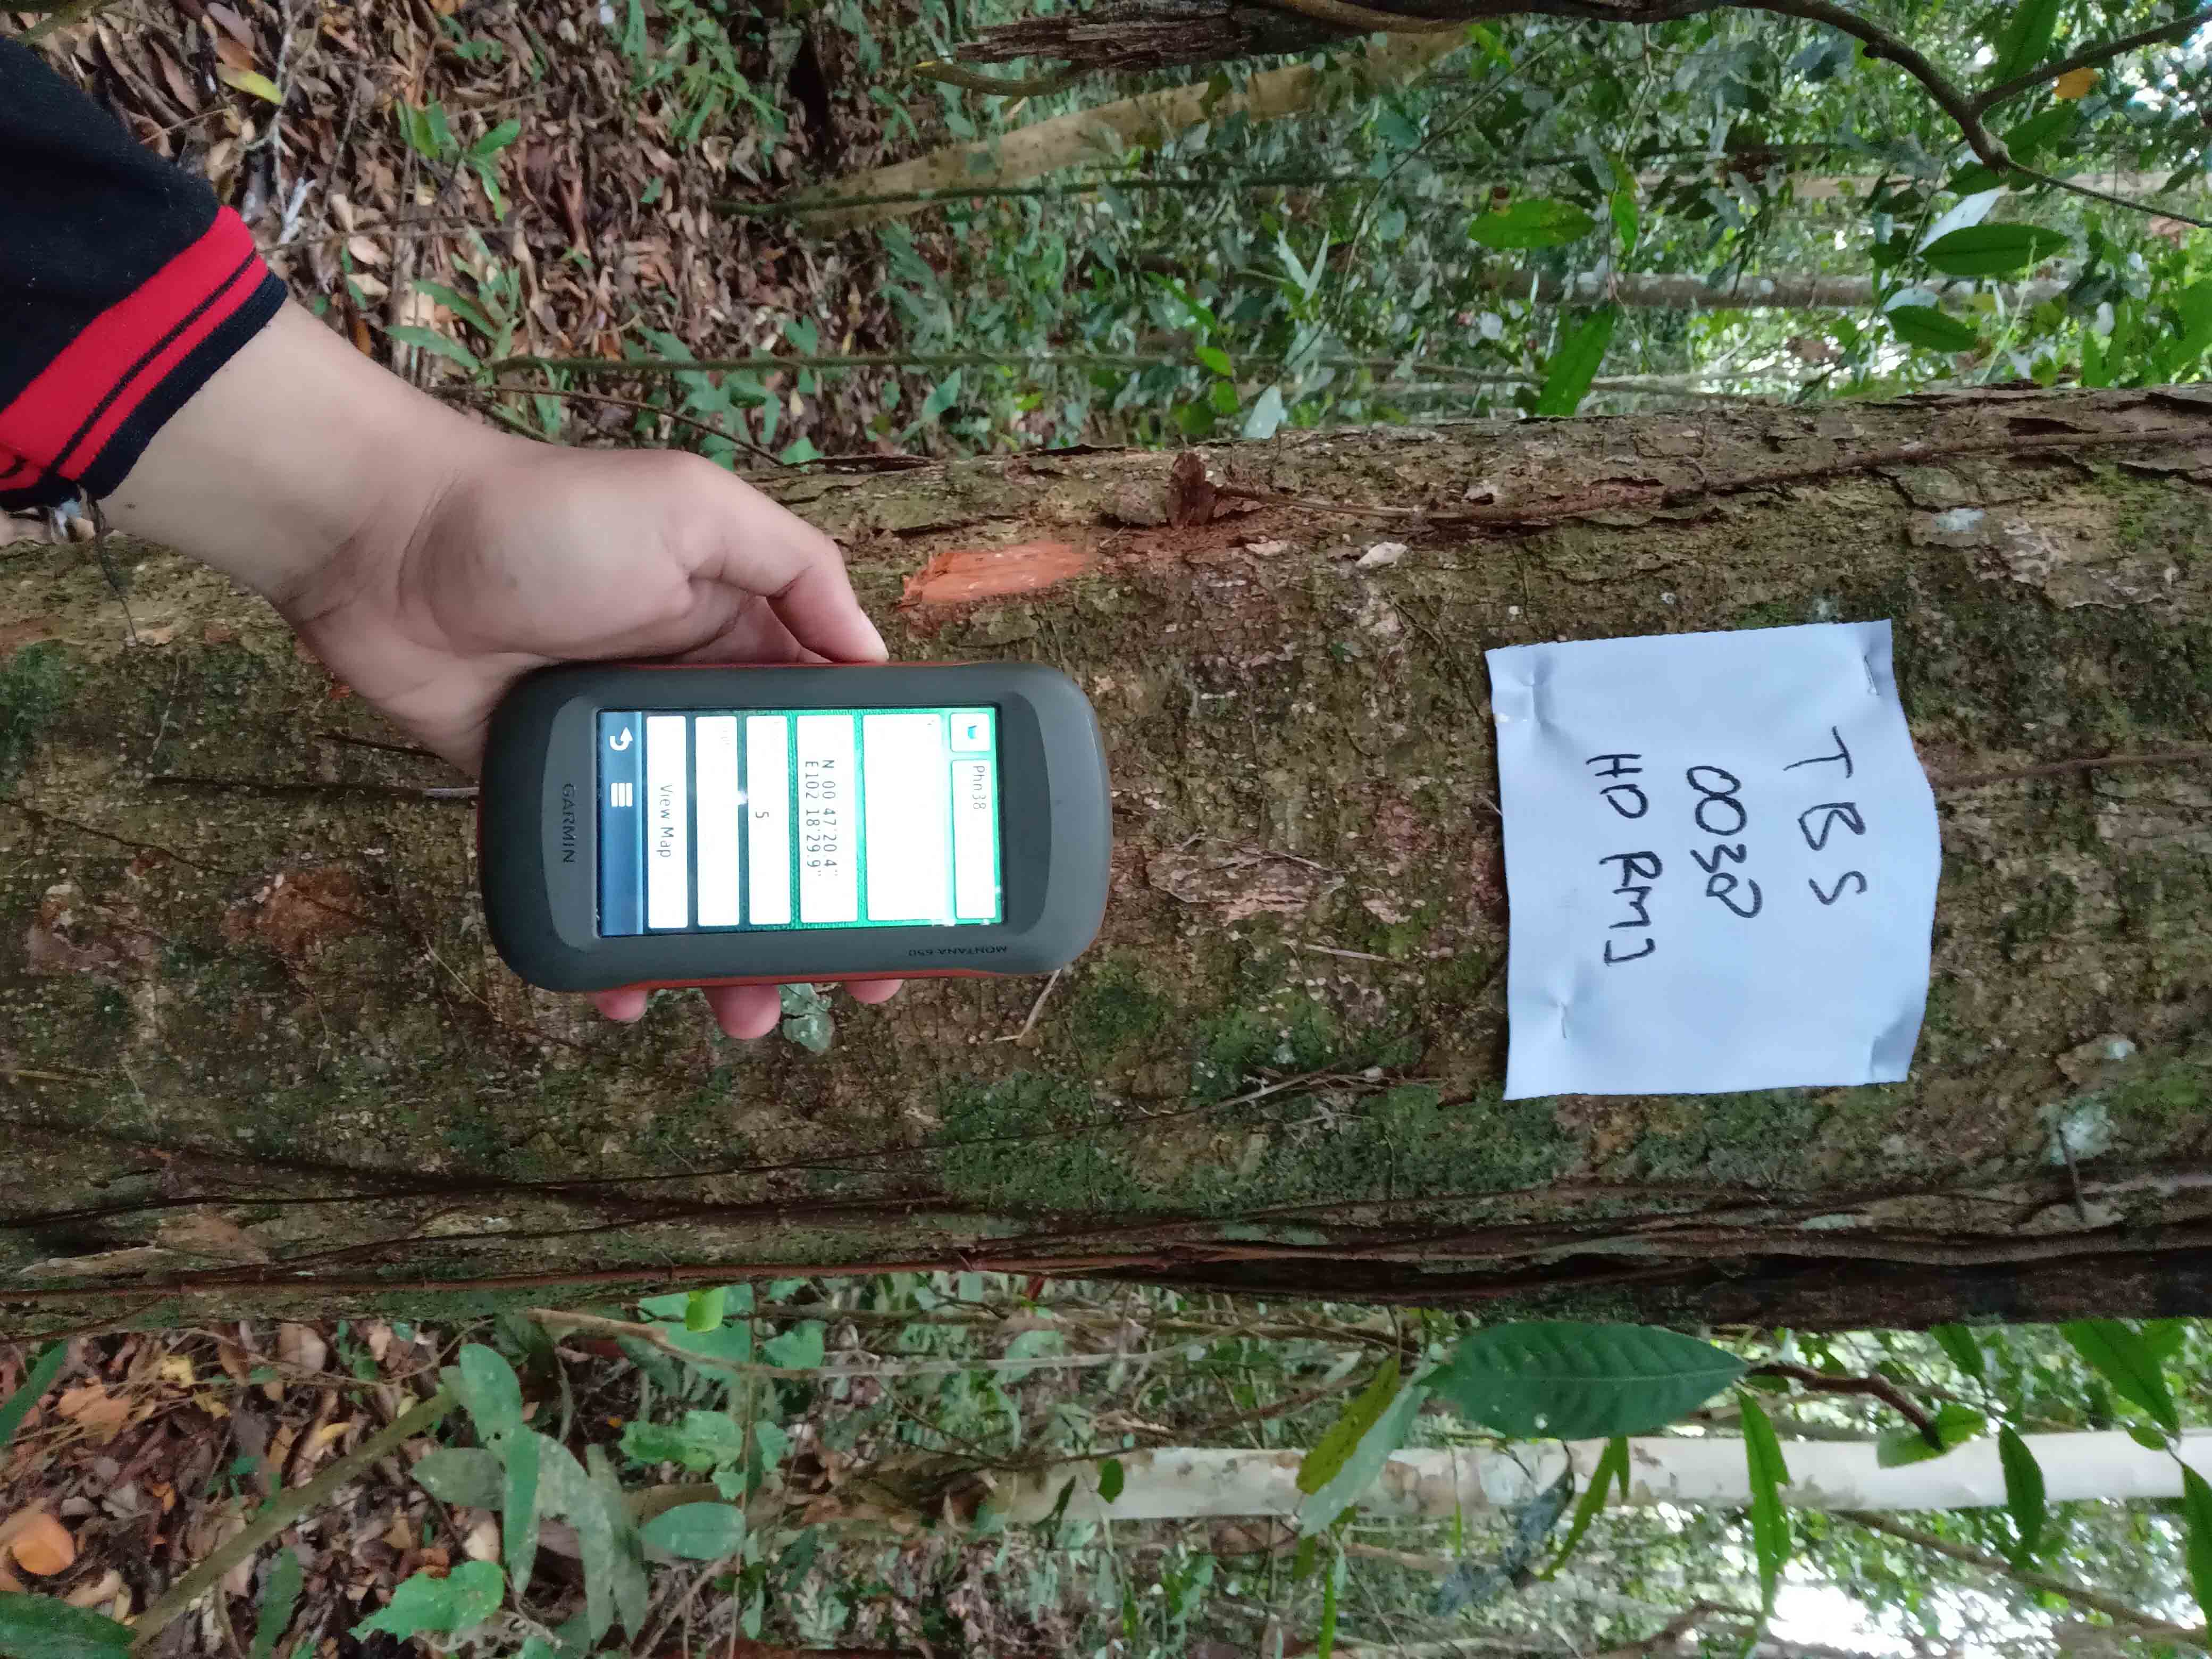 TBS
0038
HD RMJ
MONTANA 650
Phn38
N 00 47'20.4"
E102 18'29.9"
5
View Map
GARMIN